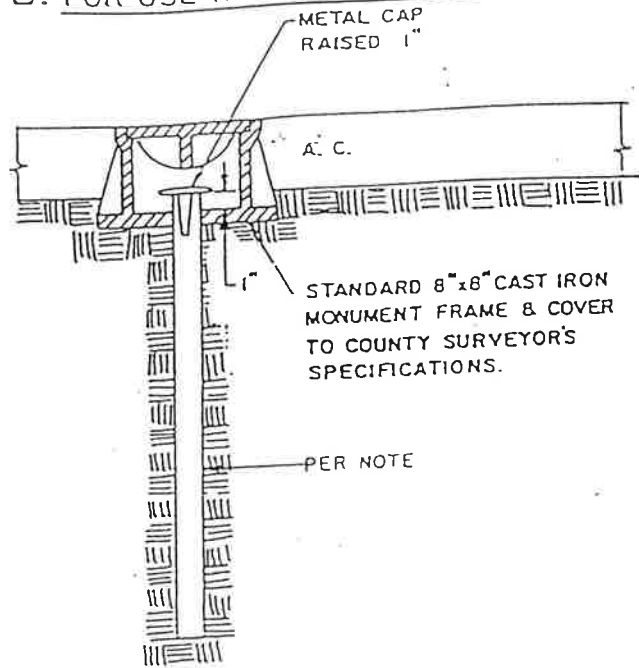 FOR USE
METAL CAP
RAISED 1"
A. C.
1"
STANDARD 8"x8" CAST IRON
MONUMENT FRAME & COVER
TO COUNTY SURVEYOR'S
SPECIFICATIONS.
PER NOTE